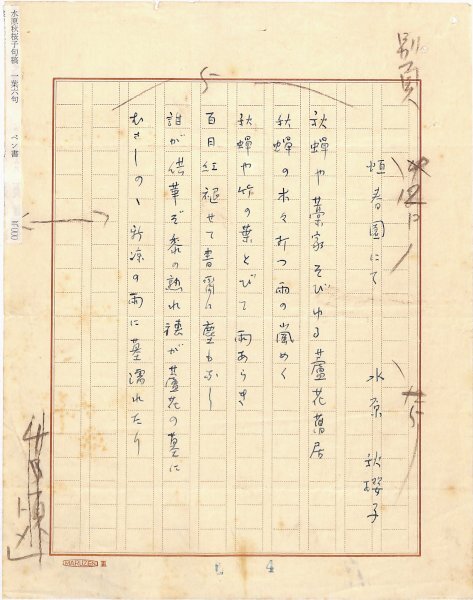 水原秋桜子句稿 一葉六句 ペン書
別頁
恒春園にて
水原 秋櫻子
秋蝉や藁家そびゆる蘆花舊居
秋蝉の木々打つ雨の嵐めく
秋蝉や竹の葉とびて雨あらき
百日紅褪せて書窗に塵もなし
誰が供華ぞ黍の熟れ穂が蘆花の墓に
むさしのゝ新凉の雨に墓濡れたり
5
MARUZEN
4